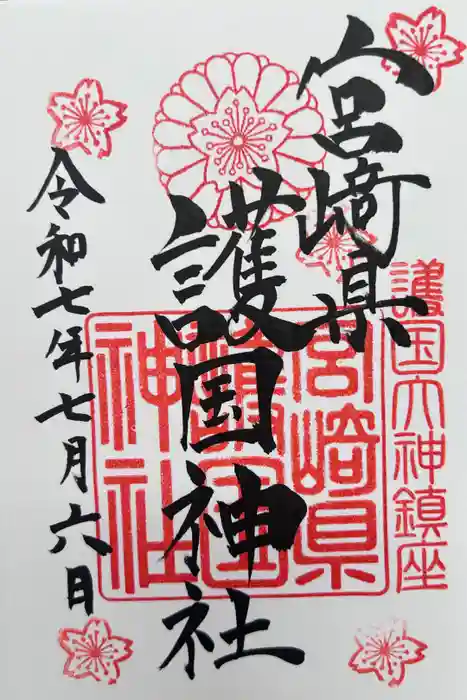 宮崎県
護国神社
令和七年七月六日
護国大神鎮座
宮崎県
護國
神社